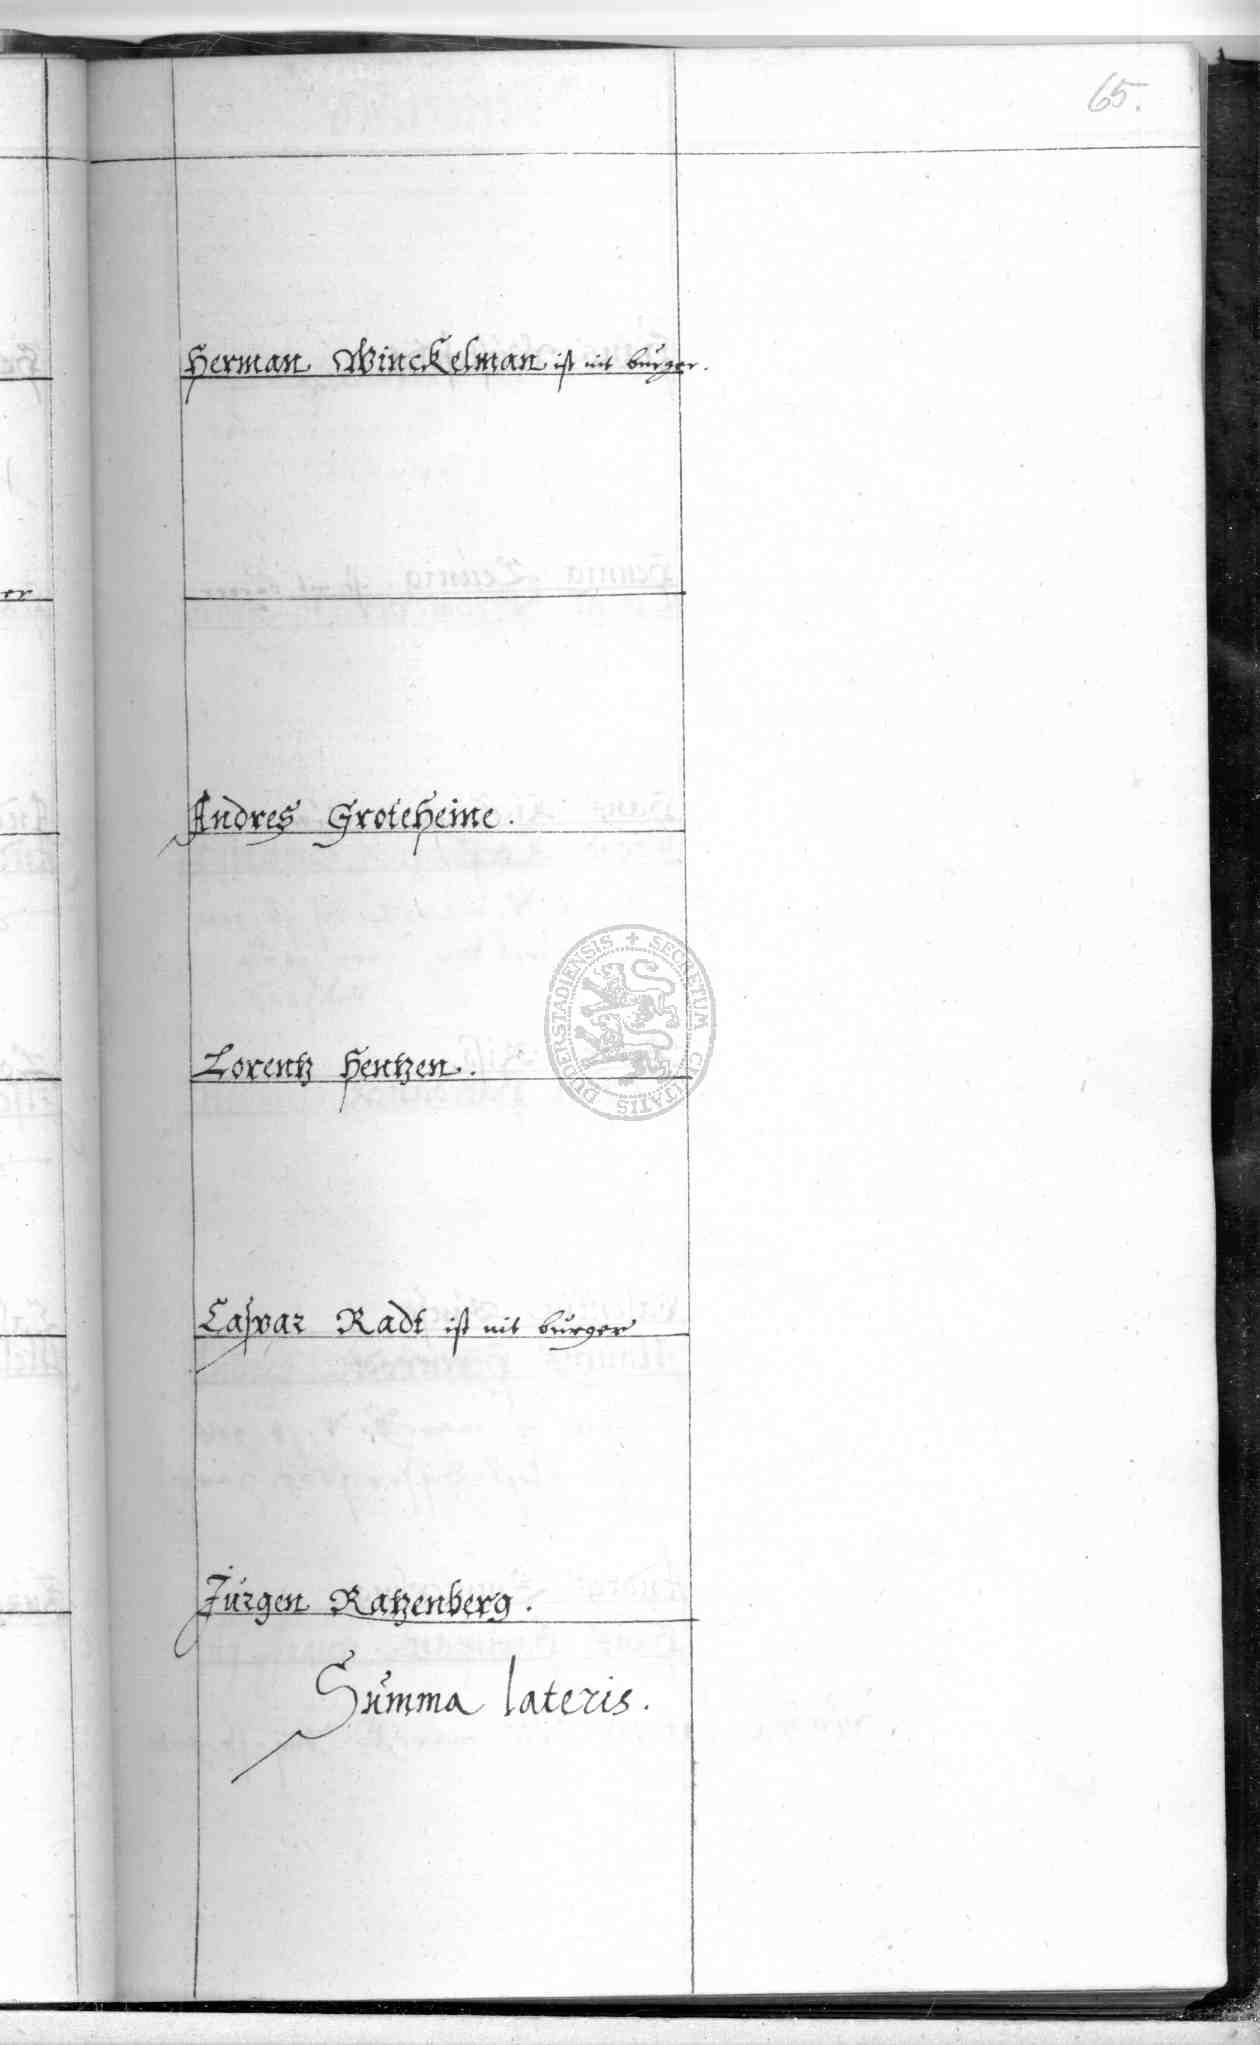 65.
Herman Winckelman ist nit burger.
er
Andres Groteheine.
Lorentz Hentzen.
Caspar Radt ist nit burger
Jürgen Ratzenberg.
Summa lateris.
SECRETUM CIVITATIS DUDERSTADIENSIS